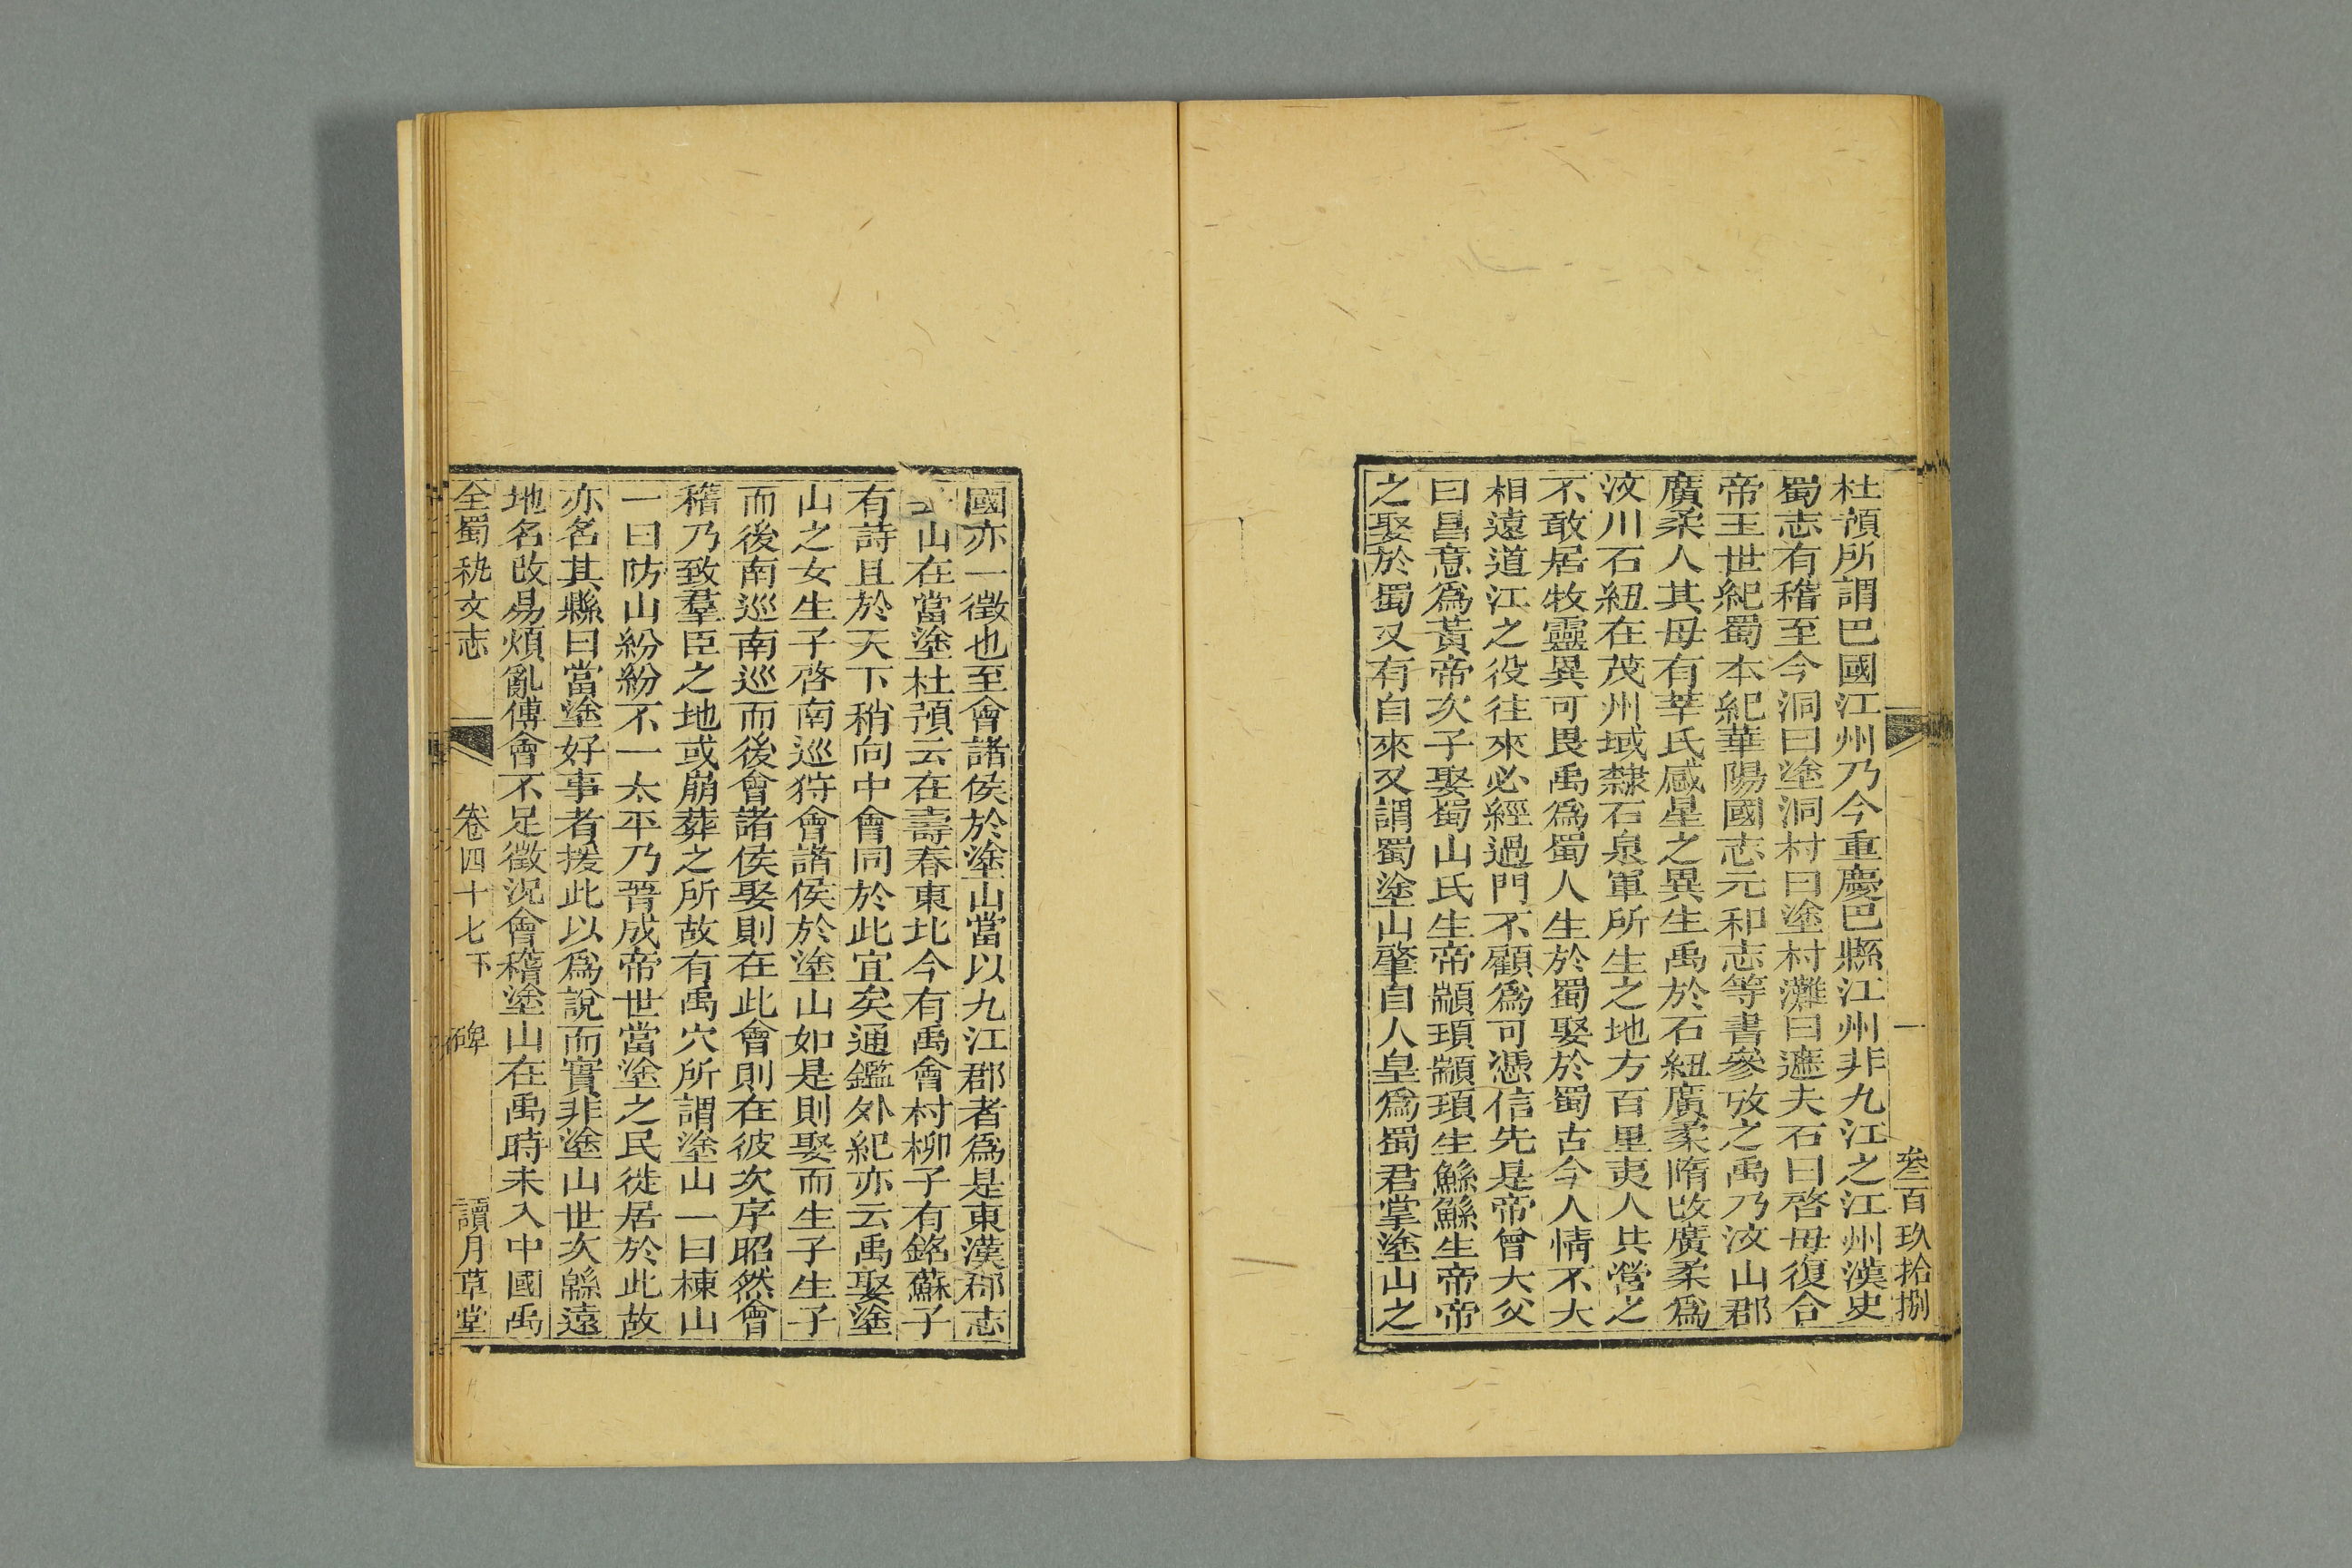 一
叄百玖拾捌
杜預所謂巴國江州乃今重慶巴縣江州非九江之江州漢史
蜀志有稽至今洞曰塗洞村曰塗村灘曰遮夫石曰啓毋復合
帝王世紀蜀本紀華陽國志元和志等書參攷之禹乃汶山郡
廣柔人其母有莘氏感星之異生禹於石紐廣柔隋改廣柔爲
汶川石紐在茂州域隸石泉軍所生之地方百里夷人共營之
不敢居牧靈異可畏禹爲蜀人生於蜀娶於蜀古今人情不大
相遠道江之役往來必經過門不顧爲可憑信先是帝曾大父
曰昌意爲黃帝次子娶蜀山氏生帝顓頊顓頊生鯀鯀生帝帝
之娶於蜀又有自來又謂蜀塗山肇自人皇爲蜀君掌塗山之
國亦一徵也至會諸侯於塗山當以九江郡者爲是東漢郡志
山在當塗杜預云在壽春東北今有禹會村柳子有銘蘇子
有詩且於天下稍向中會同於此宜矣通鑑外紀亦云禹娶塗
山之女生子啓南巡狩會諸侯於塗山如是則娶而生子生子
而後南巡南巡而後會諸侯娶則在此會則在彼次序昭然會
稽乃致羣臣之地或崩葬之所故有禹穴所謂塗山一曰棟山
一曰防山紛紛不一太平乃晉成帝世當塗之民徙居於此故
亦名其縣曰當塗好事者援此以爲說而實非塗山世次緜遠
地名改易煩亂傅會不足徵況會稽塗山在禹時未入中國禹
全蜀秇文志
卷四十七下
碑
讀月草堂